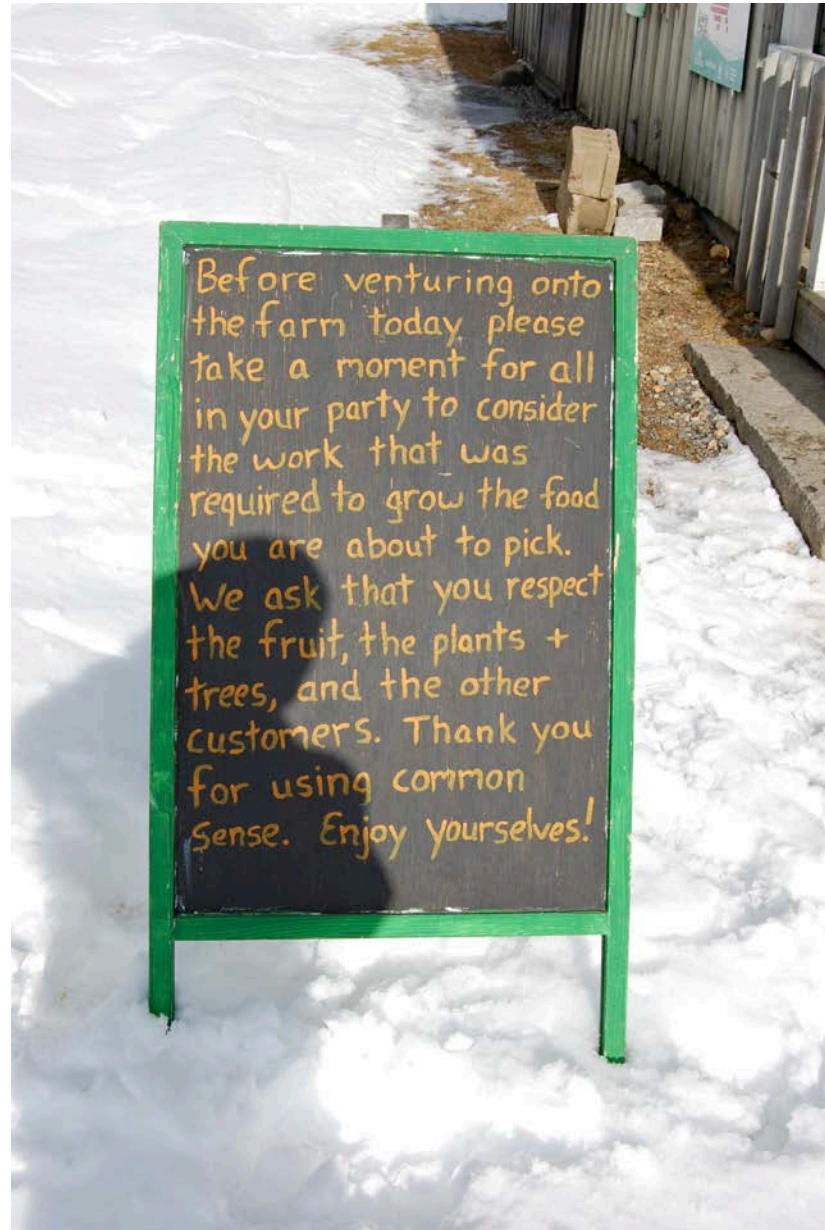 Before venturing onto
the farm today please
take a moment for all
in your party to consider
the work that was
required to grow the food
you are about to pick.
We ask that you respect
the fruit, the plants +
trees, and the other
customers. Thank you
for using common
sense. Enjoy yourselves!